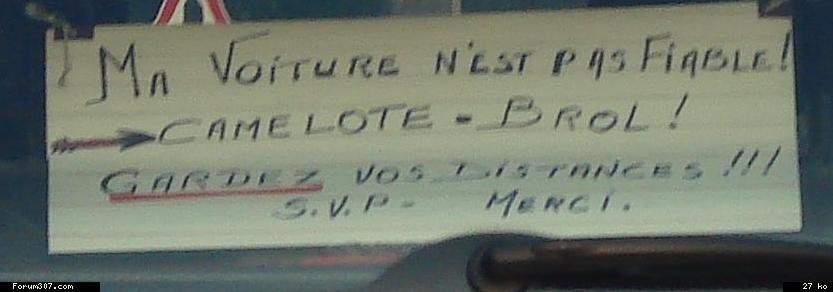 MA VOITURE N'EST PAS FIABLE!
CAMELOTE - BROL!
GARDEZ VOS DISTANCES !!!
S.V.P- MERCI.
Forum307.com
27 ko